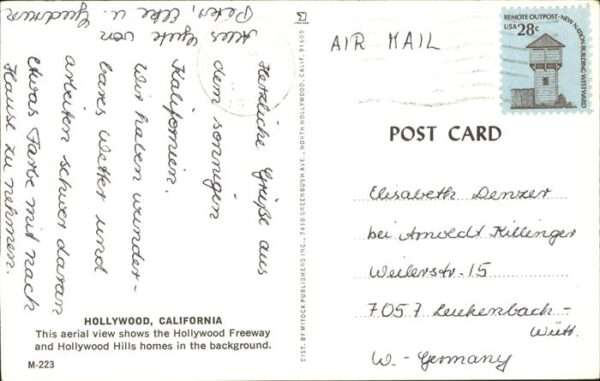 Herzliche Grüße aus
dem sonnigen
Kalifornien.
Wir haben wunder-
bares Wetter und
arbeiten schwer daran
etwas Farbe mit nach
Hause zu nehmen.
Alles Gute von
Peter, Elke u. Gudrun
HOLLYWOOD, CALIFORNIA
This aerial view shows the Hollywood Freeway
and Hollywood Hills homes in the background.
M-223
DIST. BY MITOCK PUBLISHERS INC., 7410 GREENBUSH AVE., NORTH HOLLYWOOD, CALIF. 91605
AIR MAIL
REMOTE OUTPOST-NEW NATION BUILDING WESTWARD
USA 28c
POST CARD
Elisabeth Denzer
bei Arnoldt Killinger
Weilerstr. 15
7057 Leutenbach-
Württ.
W.-Germany